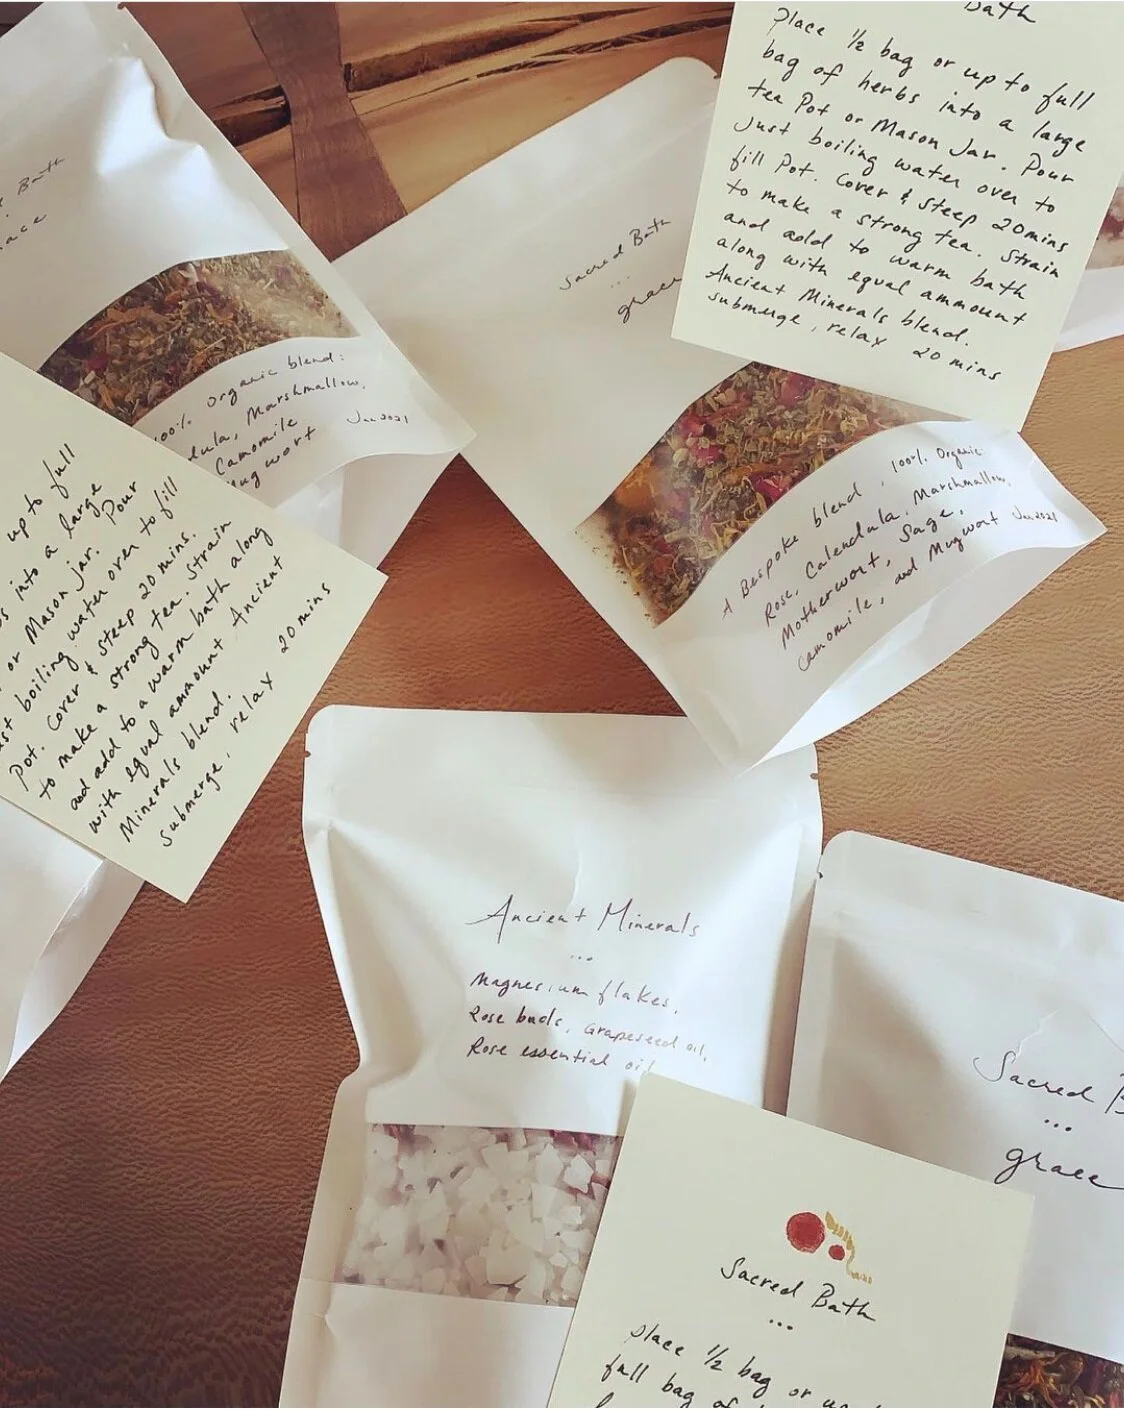 Bath
Place ½ bag or up to full
bag of herbs into a large
tea Pot or Mason Jar. Pour
Just boiling water over to
fill Pot. Cover & steep 20mins
to make a strong tea. Strain
and add to warm bath
along with equal ammount
Ancient Minerals blend.
submerge, relax 20 mins
Bath
Sacred Bath
...
grace
100% Organic blend:
Marshmallow,
Camomile
Mugwort
Jan 2021
A Bespoke blend, 100% Organic
Rose, Calendula, Marshmallow,
Motherwort, Sage,
Camomile, and Mugwort Jan 2021
up to full
into a large
or Mason jar. Pour
boiling water over to fill
Pot. Cover & steep 20 mins.
to make a strong tea. Strain
and add to a warm bath along
with equal ammount Ancient
Minerals blend.
submerge, relax 20 mins
Ancient Minerals
...
Magnesium flakes,
Rose buds, Grapeseed oil,
Rose essential oil
Sacred
...
grace
Sacred Bath
...
place ½ bag or
full bag of